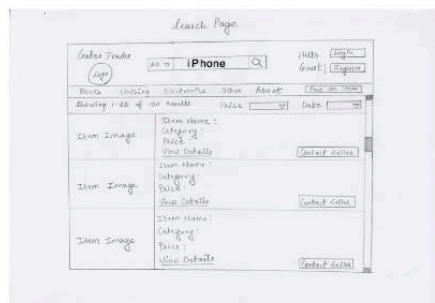 Search Page
Crates Trader
Logo
All
iPhone
Hello
Login
Guest
Register
Books Clothing Electronics Other About
Showing 1-25 of results Price Date
Item Image
Item Name :
Category :
Price :
View Details
Contact Seller
Item Image
Item Name :
Category :
Price :
View Details
Contact Seller
Item Image
Item Name :
Category :
Price :
View Details
Contact Seller